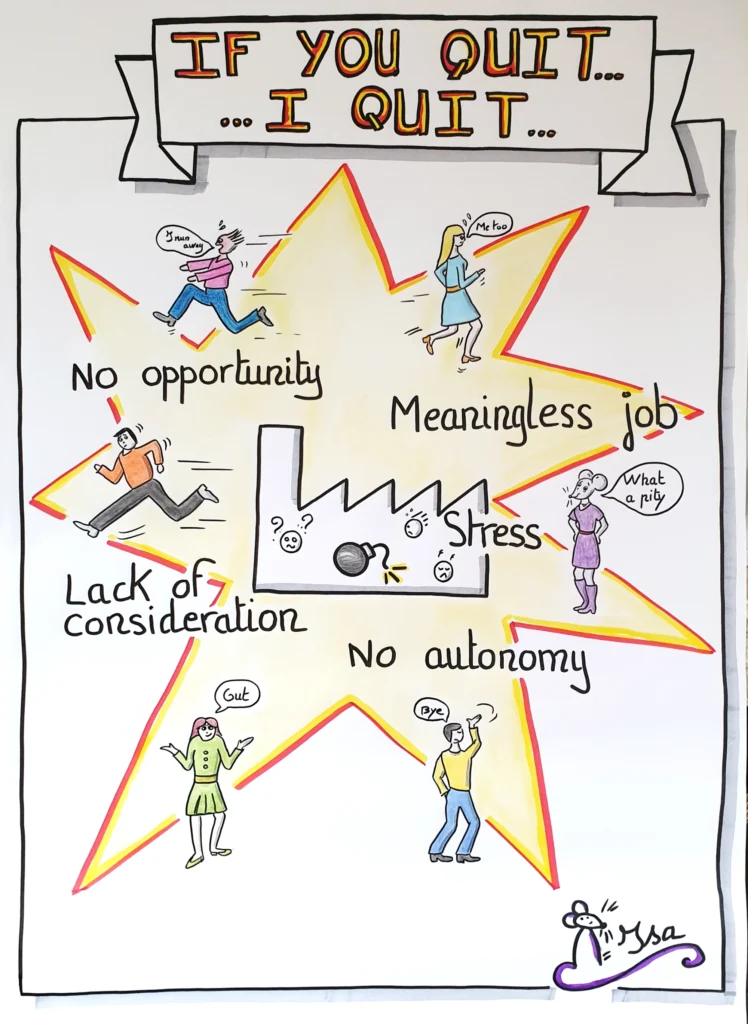 IF YOU QUIT...
... I QUIT...
I run
away
Me too
No opportunity
Meaningless job
What
a pity
Stress
? ?
Lack of
consideration
No autonomy
Gut
Bye
Isa